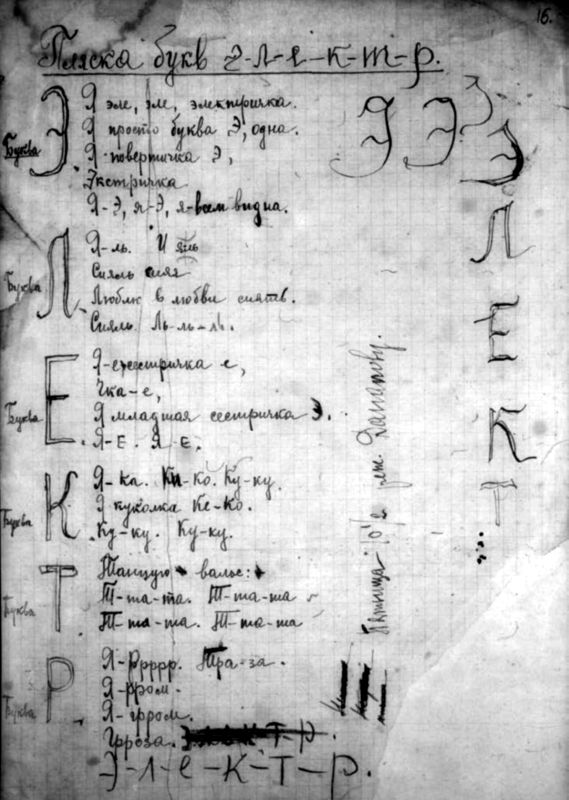 16.
Пляска букв э-л-е-к-т-р.
Буква Э
Я эле, эле, электричка.
Я просто буква Э, одна.
Я поверичка Э,
Экстричка
Я-Э, я-Э, я-всем видна.
Буква Л
Я-ль. И
Сияль сияя
Люблю в любви сиять.
Сияль. Ль-ль-ль.
Буква Е.
Я-естричка е,
Чка-е,
Я младшая сестричка Э.
Я-Е. Я-Е.
Буква К
Я-ка. Ки-ко. Ку-ку.
Я куколка Ке-ко.
Ку-ку. Ку-ку.
Буква Т
Танцую вальс:
Т-та-та. Т-та-та
Т-та-та. Т-та-та
Буква Р.
Я-Ррррр. Тра-за.
Я-рром.
Я-грром.
Грроза.
Э-л-е-к-т-р.
Э Э Э
Э
Л
Е
К
Т
Пятница